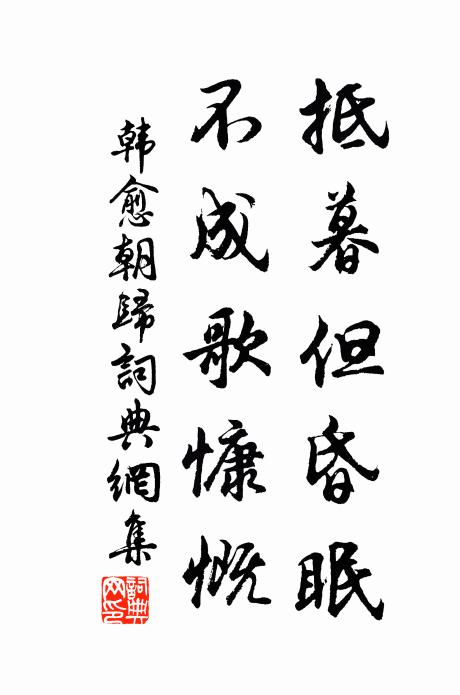 抵暮但昏眠
不成歌慷慨
韩愈朝歸詞典網集
詞典网印